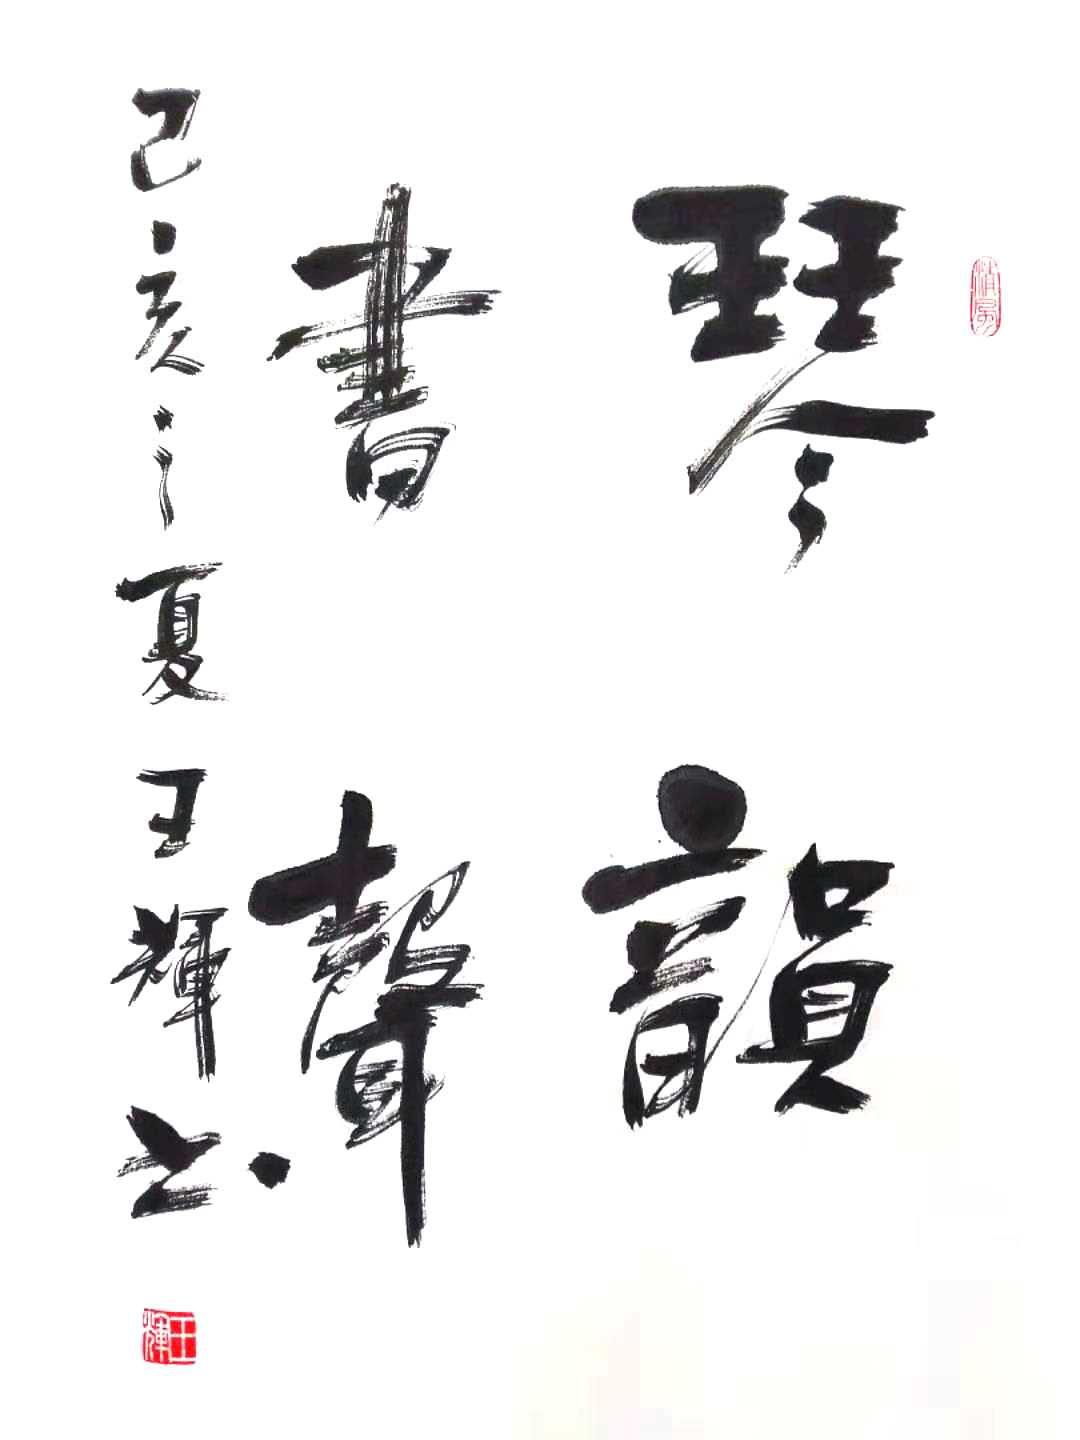 琴韻
書聲
己亥之夏王輝书
清風
王輝